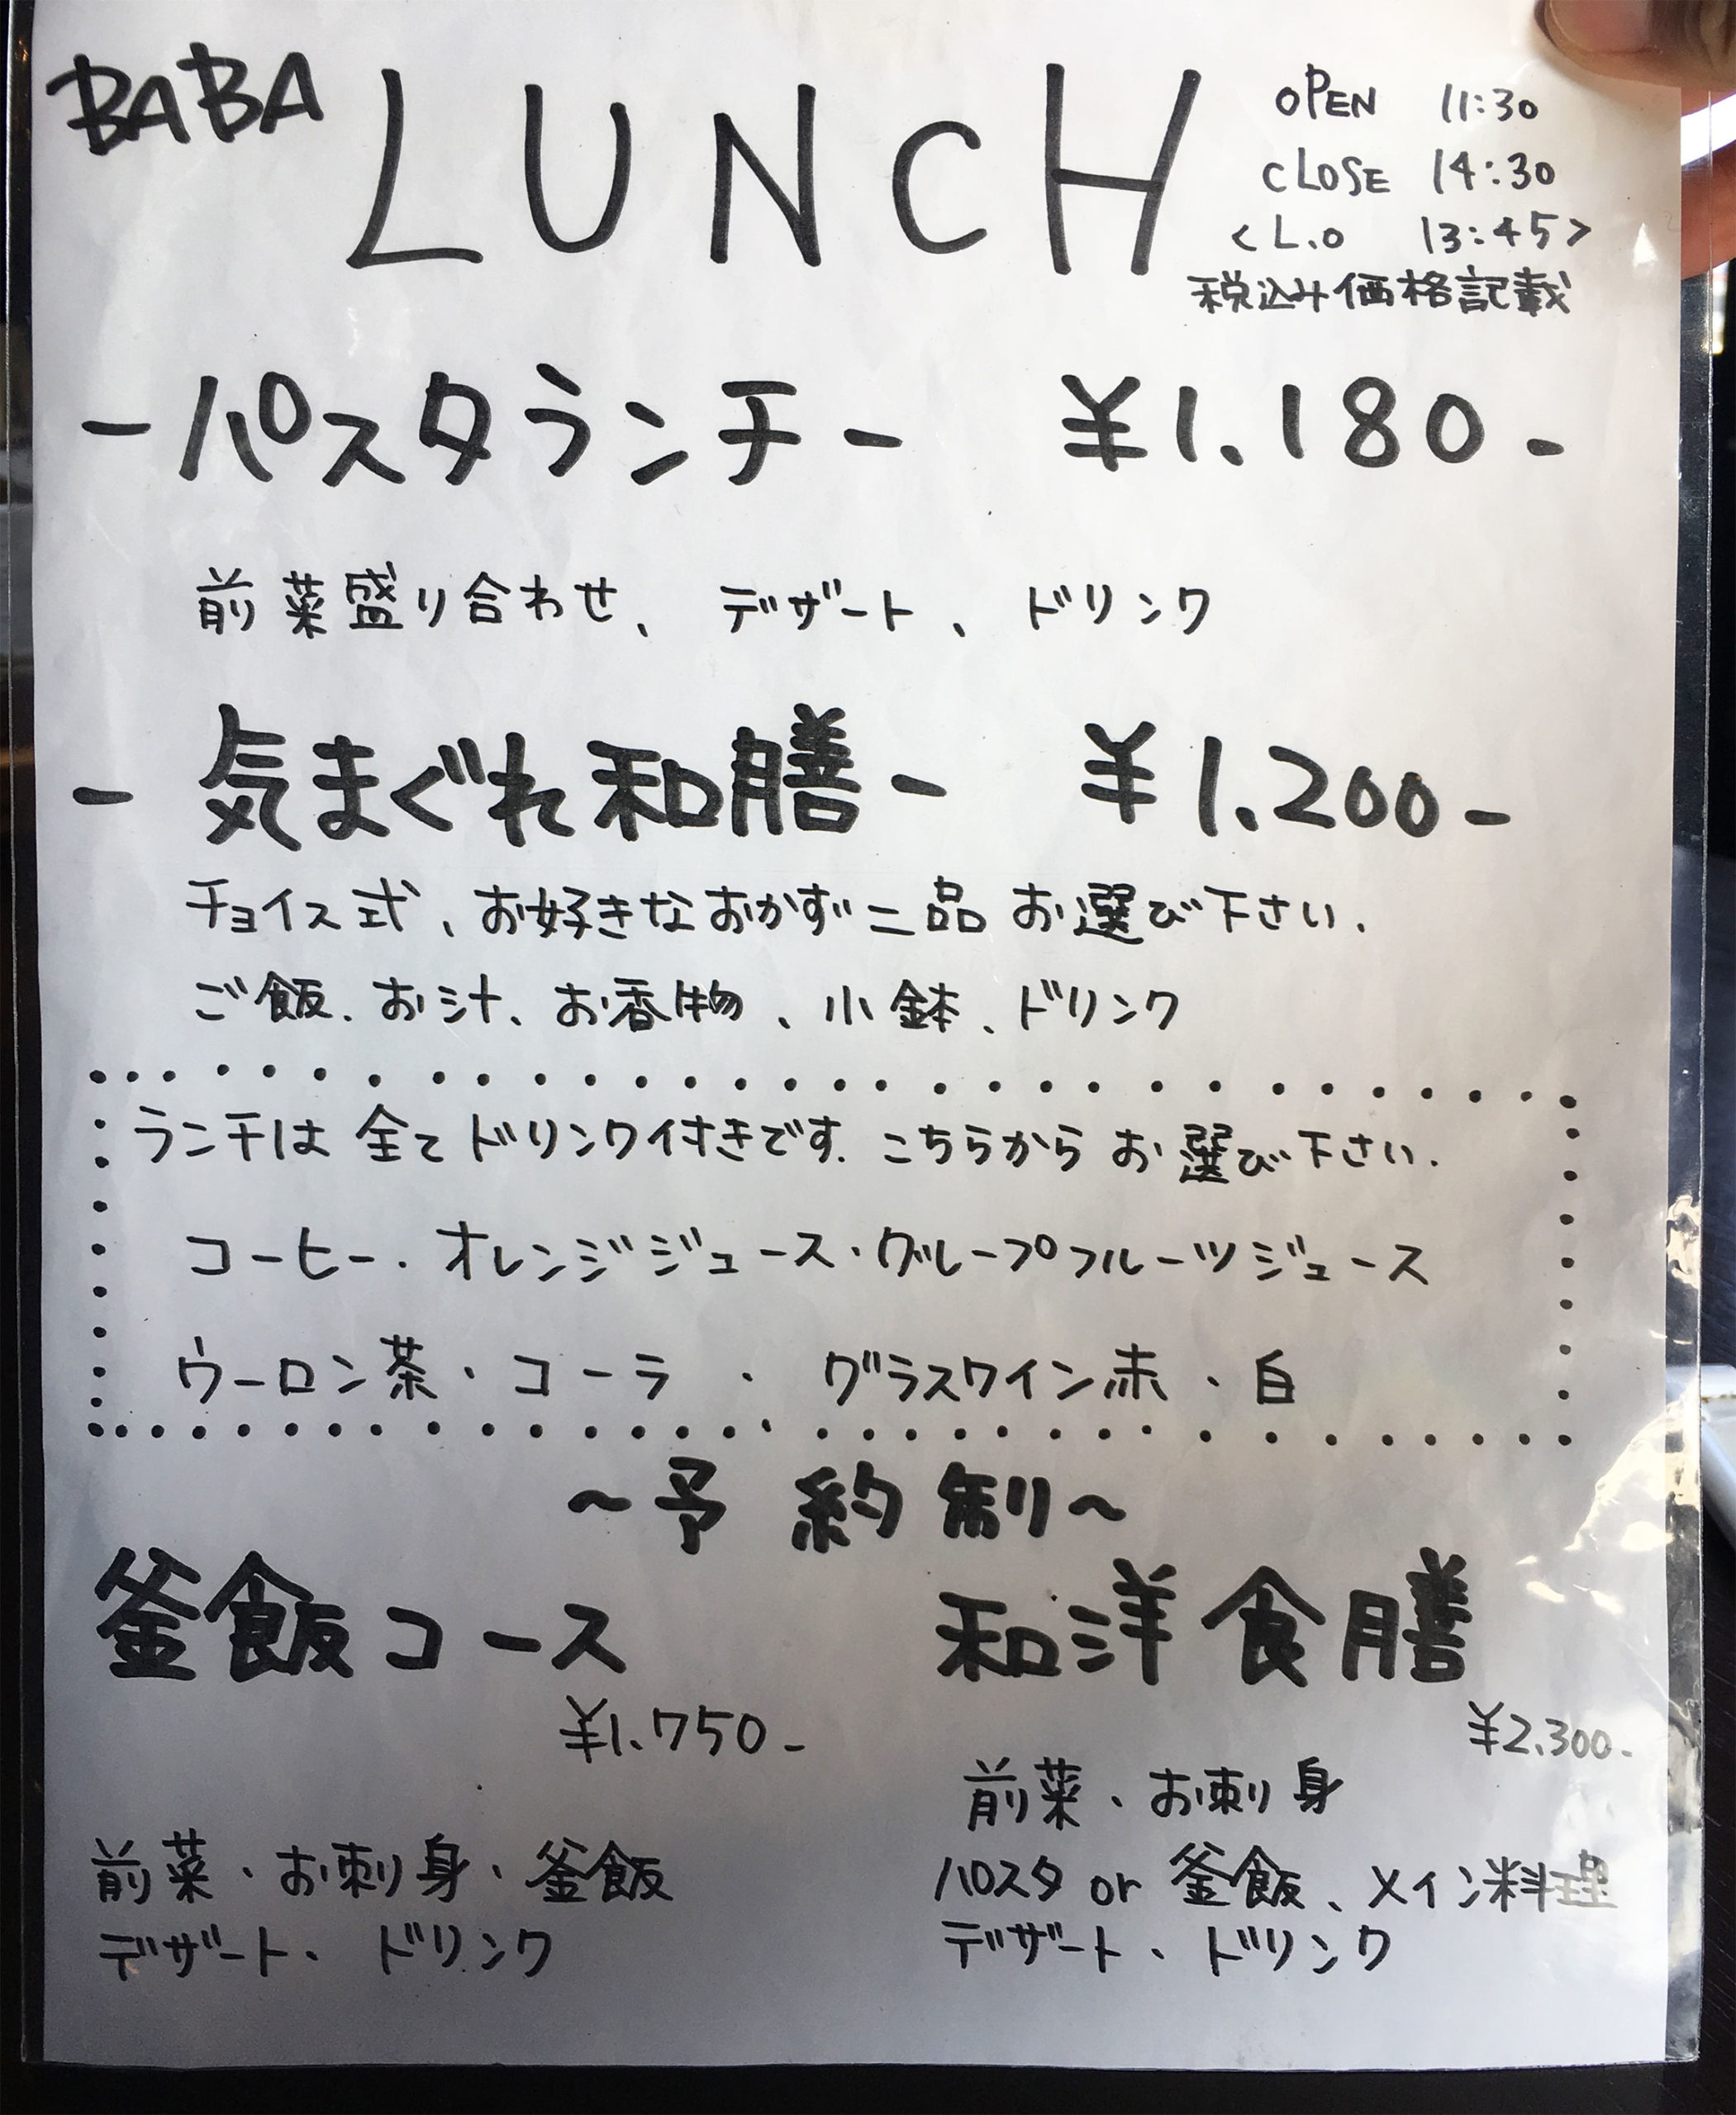 BABA LUNCH
OPEN 11:30
CLOSE 14:30
<L.O 13:45>
税込み価格記載
-パスタランチ- ¥1.180-
前菜盛り合わせ、デザート、ドリンク
-気まぐれ和膳- ¥1.200-
チョイス式、お好きなおかず二品お選び下さい.
ご飯、お汁、お香物、小鉢、ドリンク
ランチは全てドリンク付きです.こちらからお選び下さい.
コーヒー・オレンジジュース・グレープフルーツジュース
ウーロン茶・コーラ・グラスワイン赤・白
~予約制~
釜飯コース
¥1.750-
前菜・お刺身・釜飯
デザート、ドリンク
和洋食膳
¥2.300-
前菜・お刺身
パスタ or 釜飯、メイン料理
デザート、ドリンク